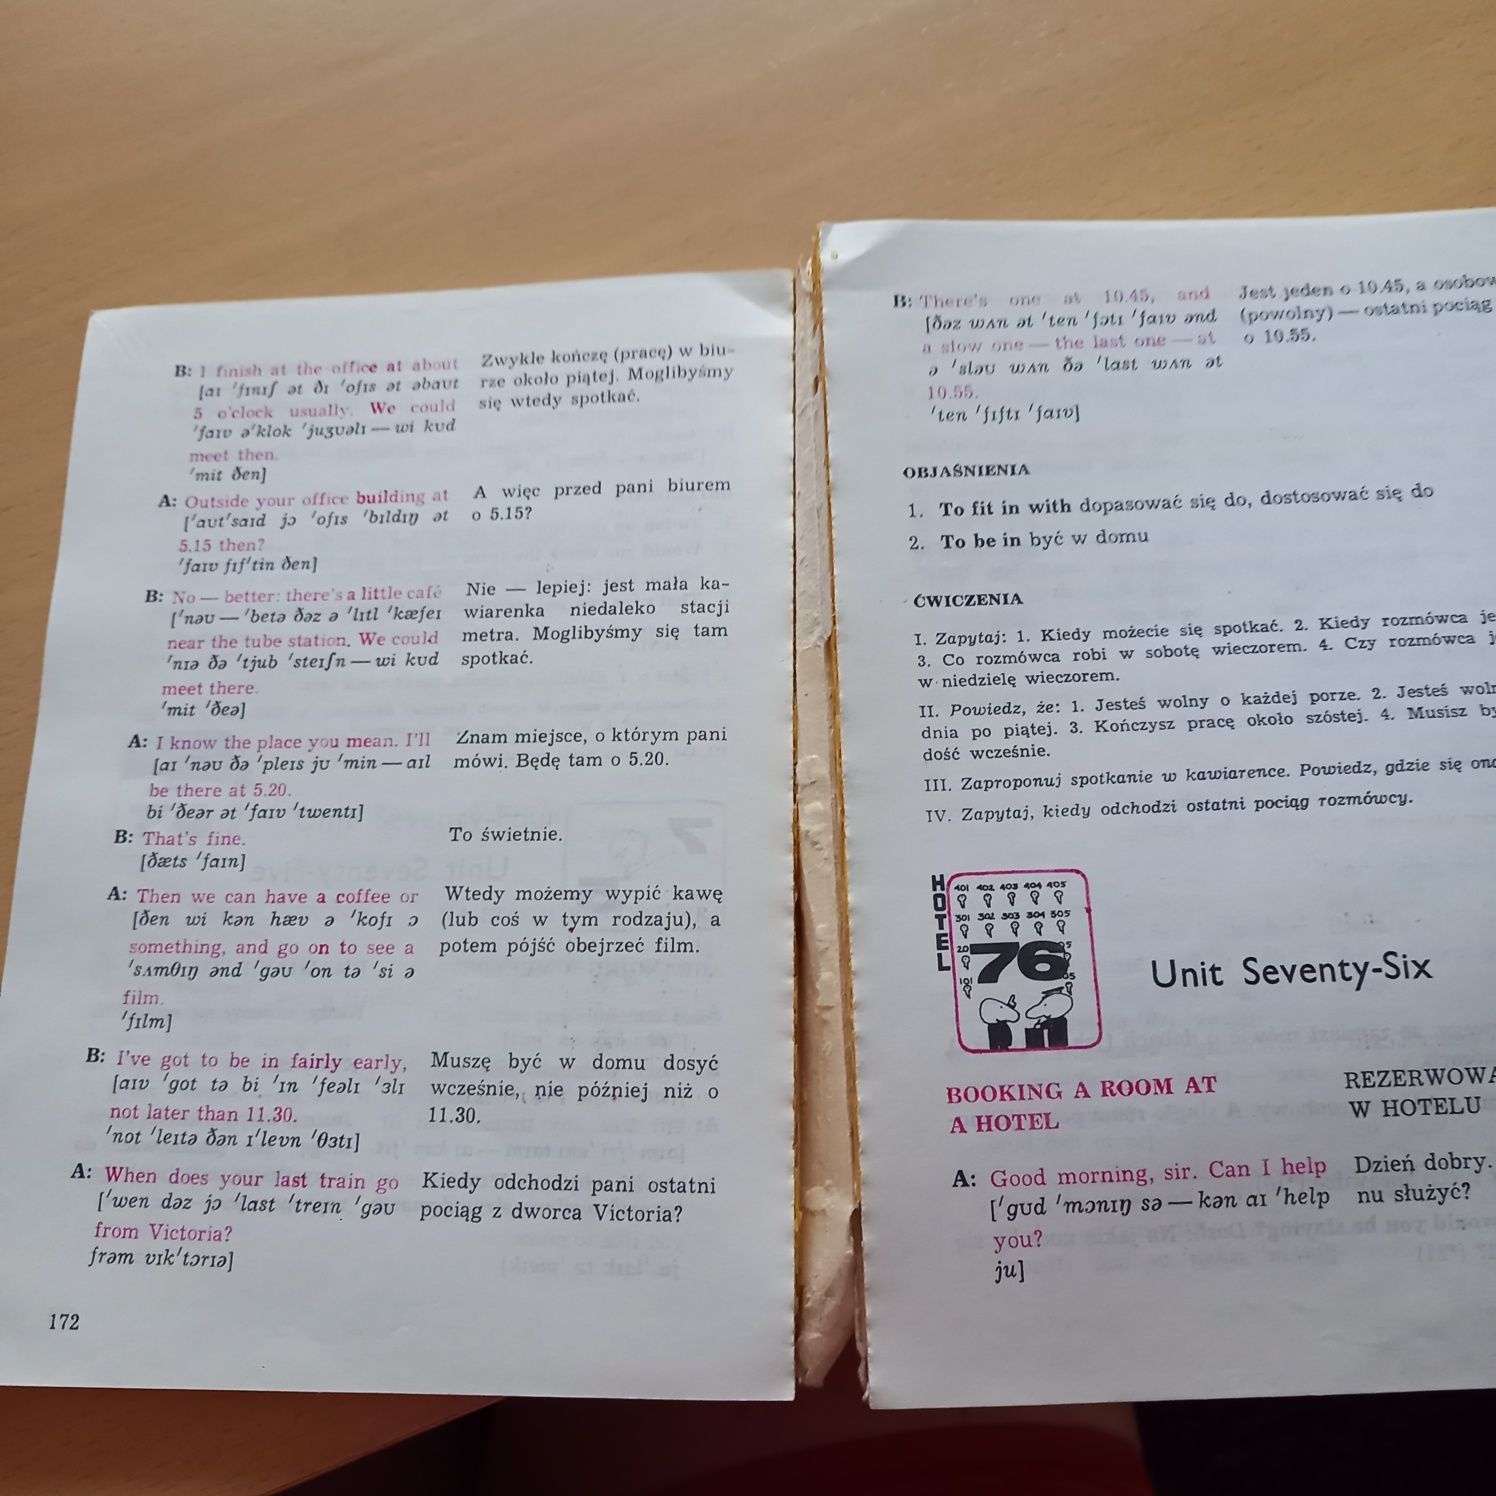 B: I finish at the office at about
[aɪ ˈfɪnɪʃ ət ðɪ ˈofɪs ət əbaʊt
5 o'clock usually. We could
ˈfaɪv əˈklok ˈjuʒʊəlɪ — wi kʊd
meet then.
ˈmit ðen]
Zwykle kończę (pracę) w biu-
rze około piątej. Moglibyśmy
się wtedy spotkać.
A: Outside your office building at
[ˈaʊtˈsaɪd jɔ ˈofɪs ˈbɪldɪŋ ət
5.15 then?
ˈfaɪv fɪfˈtin ðen]
A więc przed pani biurem
o 5.15?
B: No — better: there's a little café
[ˈnəʊ — ˈbetə ðəz ə ˈlɪtl ˈkæfeɪ
near the tube station. We could
ˈnɪə ðə ˈtjub ˈsteɪʃn — wi kʊd
meet there.
ˈmit ˈðeə]
Nie — lepiej: jest mała ka-
wiarenka niedaleko stacji
metra. Moglibyśmy się tam
spotkać.
A: I know the place you mean. I'll
[aɪ ˈnəʊ ðə ˈpleɪs jʊ ˈmin — aɪl
be there at 5.20.
bi ˈðeər ət ˈfaɪv ˈtwentɪ]
Znam miejsce, o którym pani
mówi. Będę tam o 5.20.
B: That's fine.
[ðæts ˈfaɪn]
To świetnie.
A: Then we can have a coffee or
[ðen wi kən hæv ə ˈkofɪ ɔ
something, and go on to see a
ˈsʌmθɪŋ ənd ˈgəʊ ˈon tə ˈsi ə
film.
ˈfɪlm]
Wtedy możemy wypić kawę
(lub coś w tym rodzaju), a
potem pójść obejrzeć film.
B: I've got to be in fairly early,
[aɪv ˈgot tə bi ˈɪn ˈfeəlɪ ˈɜlɪ
not later than 11.30.
ˈnot ˈleɪtə ðən ɪˈlevn ˈθɜtɪ]
Muszę być w domu dosyć
wcześnie, nie później niż o
11.30.
A: When does your last train go
[ˈwen dəz jɔ ˈlast ˈtreɪn ˈgəʊ
from Victoria?
frəm vɪkˈtɔrɪə]
Kiedy odchodzi pani ostatni
pociąg z dworca Victoria?
172
B: There's one at 10.45, and
[ðəz wʌn ət ˈten ˈfɔtɪ ˈfaɪv ənd
a slow one — the last one — at
ə ˈsləʊ wʌn ðə ˈlast wʌn ət
10.55.
ˈten ˈfɪftɪ ˈfaɪv]
Jest jeden o 10.45, a
(powolny) — ostatni pociąg
o 10.55.
OBJAŚNIENIA
1. To fit in with dopasować się do, dostosować się do
2. To be in być w domu
ĆWICZENIA
I. Zapytaj: 1. Kiedy możecie się spotkać. 2. Kiedy rozmówca
3. Co rozmówca robi w sobotę wieczorem. 4. Czy rozmówca
w niedzielę wieczorem.
II. Powiedz, że: 1. Jesteś wolny o każdej porze. 2. Jesteś
dnia po piątej. 3. Kończysz pracę około szóstej. 4. Musisz
dość wcześnie.
III. Zaproponuj spotkanie w kawiarence. Powiedz, gdzie się
IV. Zapytaj, kiedy odchodzi ostatni pociąg rozmówcy.
HOTEL
401 402 403 404 405
301 302 303 304 305
76
Unit Seventy-Six
BOOKING A ROOM AT
A HOTEL
W HOTELU
A: Good morning, sir. Can I help
[ˈgʊd ˈmɔnɪŋ sə — kən aɪ ˈhelp
you?
ju]
Dzień dobry.
nu służyć?